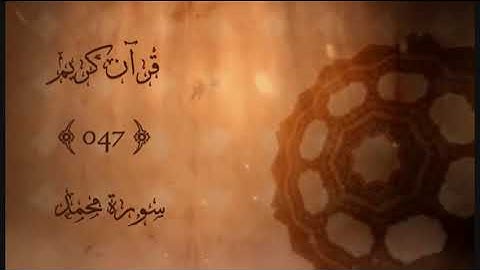 قرآن كريم
﴾ 047 ﴿
سورة محمد